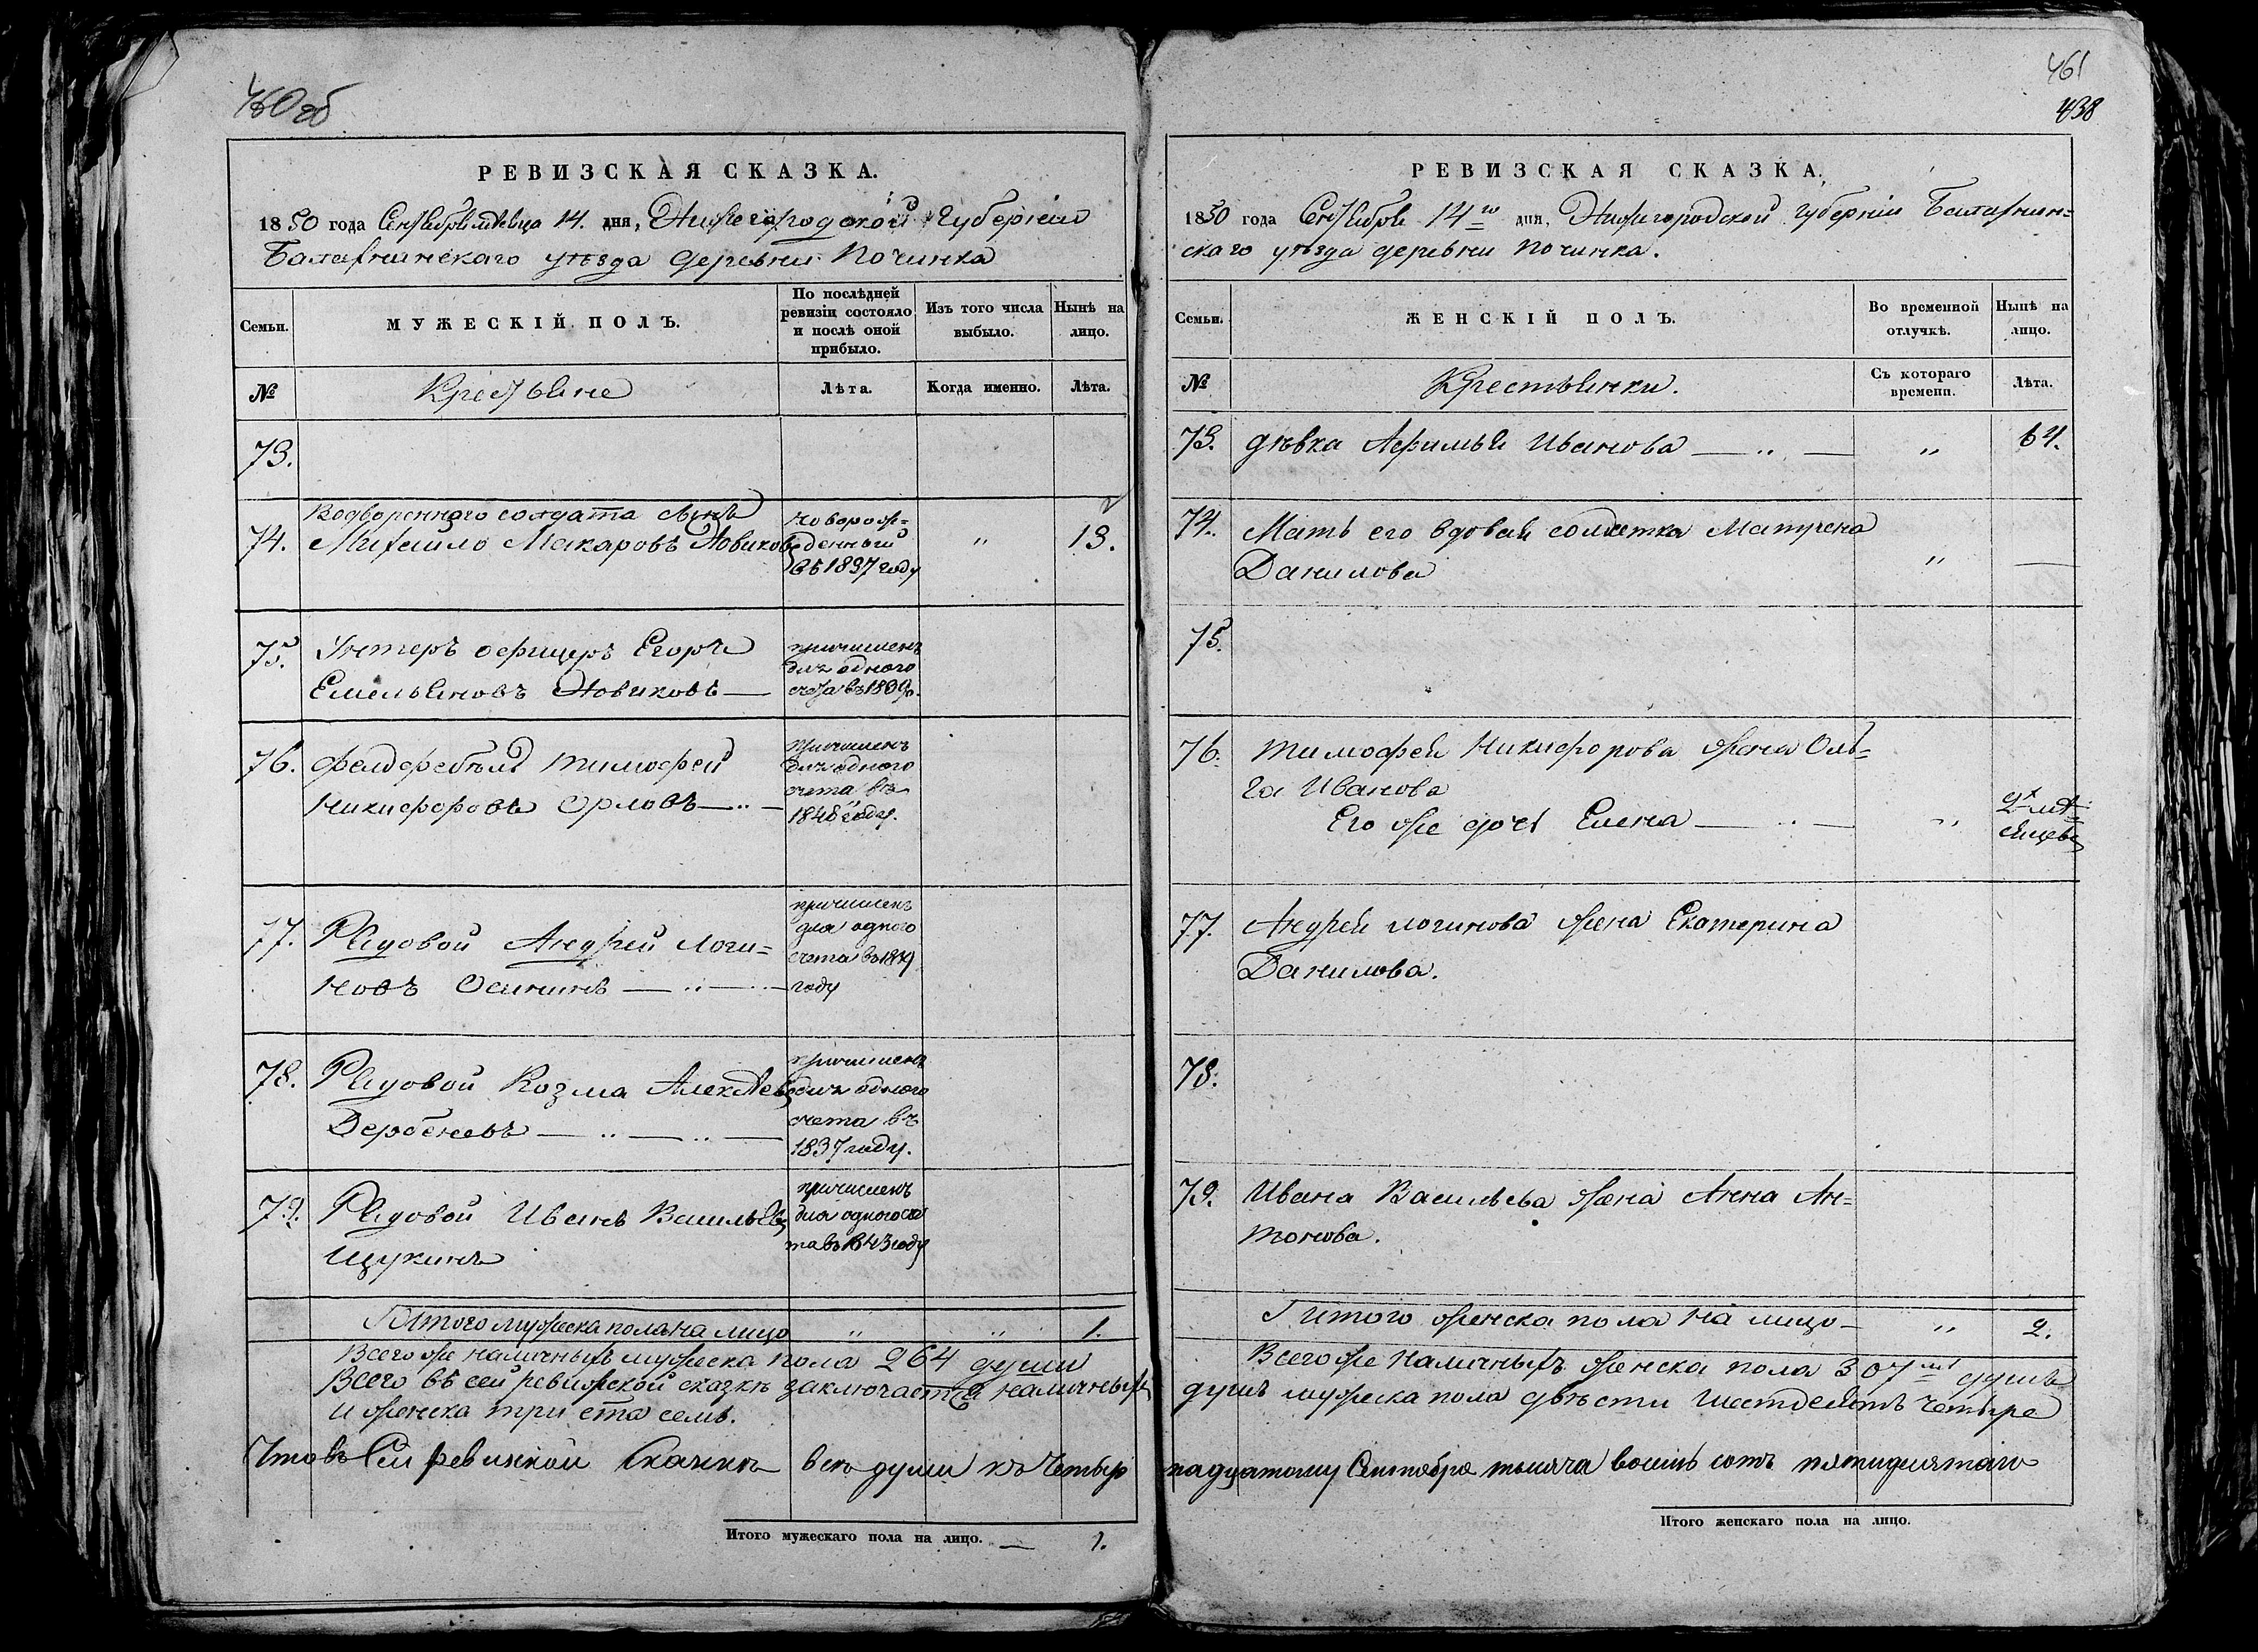 460об
РЕВИЗСКАЯ СКАЗКА.
1850 года Сентября месяца 14. дня, Нижегородской Губернии
Балахнинскаго уѣзда деревни Починка
Семьи.
МУЖЕСКІЙ ПОЛЪ.
По послѣдней ревизіи состояло и послѣ оной прибыло.
Изъ того числа выбыло.
Нынѣ на лицо.
№
Крестьяне
Лѣта.
Когда именно.
Лѣта.
73.
74.
Водвореннаго солдата сынъ
Михайло Макаровъ Новиковъ
новорож-
денный
въ 1837 году
"
13.
75.
Унтеръ офицеръ Егоръ
Емельяновъ Новиковъ —
причисленъ
для одного
счета въ 1839г.
76.
Фелдфебѣль Тимофей
Никифоровъ Орловъ — " —
причисленъ
для одного
счета въ
1848 году.
77.
Рядовой Андрей Логи=
новъ Осининъ — " — " —
причисленъ
для одного
счета въ 1849
году
78.
Рядовой Козма Алексѣевъ
Дербеневъ — " — " —
причисленъ
для одного
счета въ
1837 году.
79.
Рядовой Иванъ Васильевъ
Щукинъ
причисленъ
для одного сче
та въ 1843 году
Итого мужеска пола на лицо " " 1.
Всего же наличныхъ мужеска пола 264 души
Всего въ сей ревижской сказкѣ заключается наличныхъ
и женска три ста семь.
Что въ сей ревизской сказкѣ все души къ четыр
Итого мужескаго пола на лицо. — 1.
461
438
РЕВИЗСКАЯ СКАЗКА.
1850 года Сентября 14го дня, Нижегородской губерніи Балахнин=
скаго уѣзда деревни Починка.
Семьи.
ЖЕНСКІЙ ПОЛЪ.
Во временной отлучкѣ.
Нынѣ на лицо.
№
Крестьянки.
Съ котораго времени.
Лѣта.
73.
дѣвка Афимья Иванова — " —
"
64.
74.
Мать его вдовая солдетка Матрена
Данилова
"
—
75.
76.
Тимофея Никифорова жена Оль=
га Иванова
Его же дочь Елена — " —
"
сяцевъ
77.
Андрея Логинова жена Екатерина
Данилова.
78.
79.
Ивана Васильева жена Анна Ан=
тонова.
Итого женска пола на лицо — " 2.
Всего же наличныхъ женска пола 307 душъ
душъ мужеска пола двѣсти шестдесятъ четыре
надцатому Сентября тысяча восемь сотъ пятидесятаго
Итого женскаго пола на лицо.